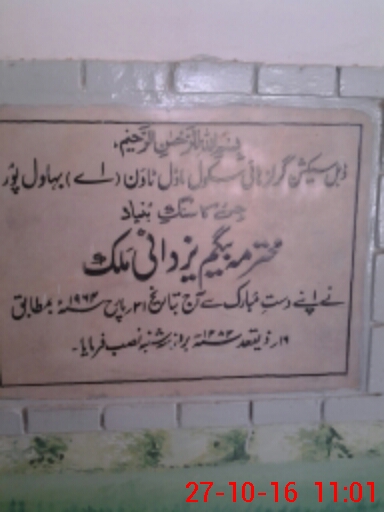 بسم اللہ الرحمٰن الرحیم
ڈبل سیکشن گرلز ہائی سکول ماڈل ٹاؤن (اے) بہاول پور
جس کا سنگِ بنیاد
محترمہ بیگم یزدانی ملک
نے اپنے دستِ مبارک سے آج بتاریخ ۳۱ مارچ ۱۹۶۴ء بمطابق
۱۶ ذیقعد ۱۳۸۳ھ بروز سہ شنبہ نصب فرمایا۔
27-10-16 11:01